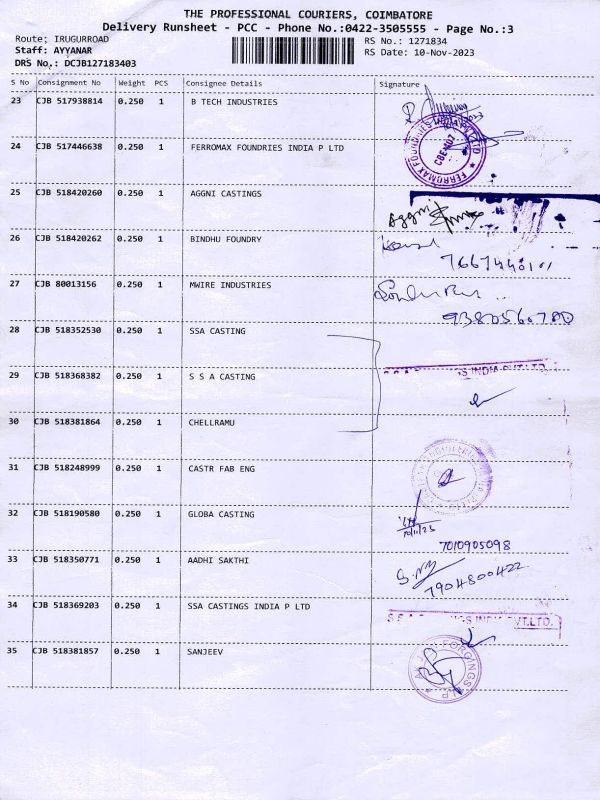 THE PROFESSIONAL COURIERS, COIMBATORE
Delivery Runsheet - PCC - Phone No.:0422-3505555 - Page No.:3
Route: IRUGURROAD RS No.: 1271834
Staff: AYYANAR RS Date: 10-Nov-2023
DRS No.: DCJB127183403
S No Consignment No Weight PCS Consignee Details Signature
23 CJB 517938814 0.250 1 B TECH INDUSTRIES
24 CJB 517446638 0.250 1 FERROMAX FOUNDRIES INDIA P LTD
FERROMAX FOUNDRIES INDIA PVT LTD
CBE-407
25 CJB 518420260 0.250 1 AGGNI CASTINGS
Aggni
26 CJB 518420262 0.250 1 BINDHU FOUNDRY
27 CJB 80013156 0.250 1 MWIRE INDUSTRIES
28 CJB 518352530 0.250 1 SSA CASTING
29 CJB 518368382 0.250 1 S S A CASTING
INDIA PVT.LTD.
30 CJB 518381864 0.250 1 CHELLRAMU
31 CJB 518248999 0.250 1 CASTR FAB ENG
32 CJB 518190580 0.250 1 GLOBA CASTING
10/11/23
7010905098
33 CJB 518350771 0.250 1 AADHI SAKTHI
7904800422
34 CJB 518369203 0.250 1 SSA CASTINGS INDIA P LTD
INDIA PVT.LTD.
35 CJB 518381857 0.250 1 SANJEEV